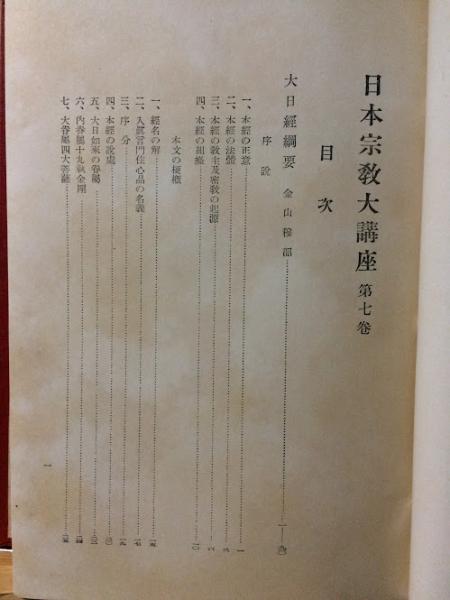 日本宗教大講座 第七卷
目次
大日經綱要 金山穆韶
序說
一、本經の正意
二、本經の法體
三、本經の敎主及密敎の起源
四、本經の組織
本文の梗槪
一、經名の解
二、入眞言門住心品の名義
三、序分
四、本經の說處
五、大日如來の眷屬
六、內眷屬十九執金剛
七、大眷屬四大菩薩
一